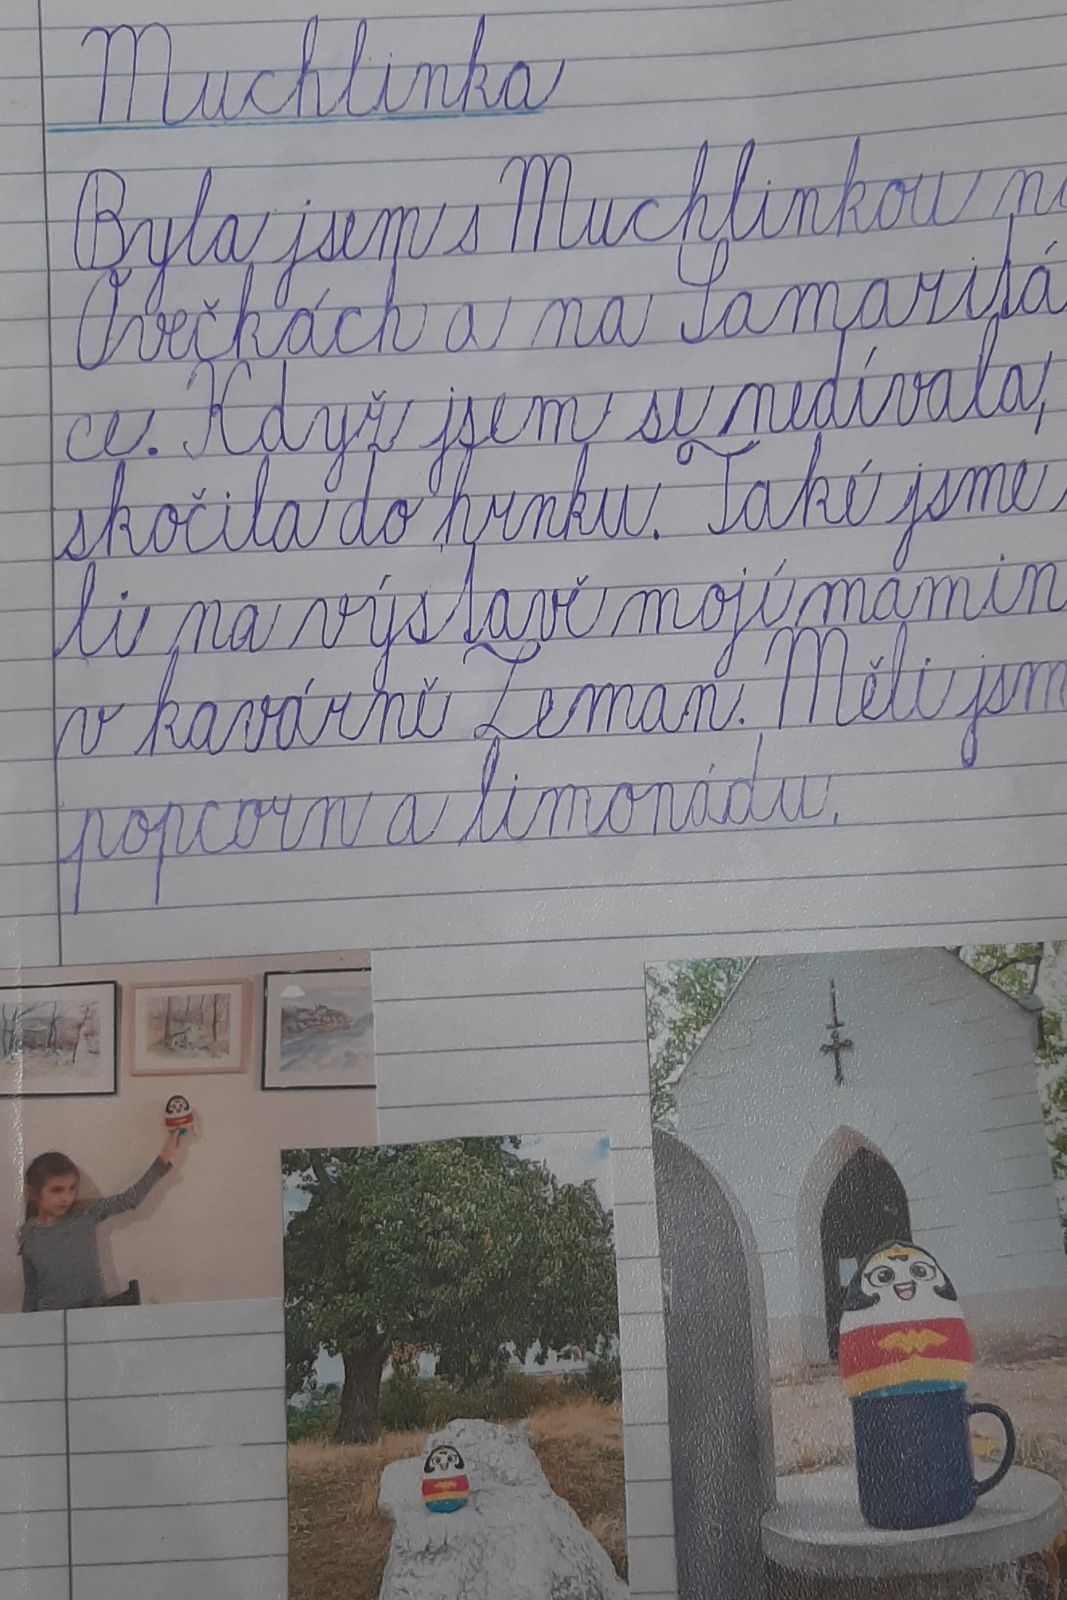 Muchlinka
Byla jsem s Muchlinkou na
Ovečkách a na Samaritá
ce. Když jsem se nedívala,
skočila do hrnku. Také jsme
li na výstavě mojí mamin
v kavárně Zeman. Měli jsm
popcorn a limonádu.